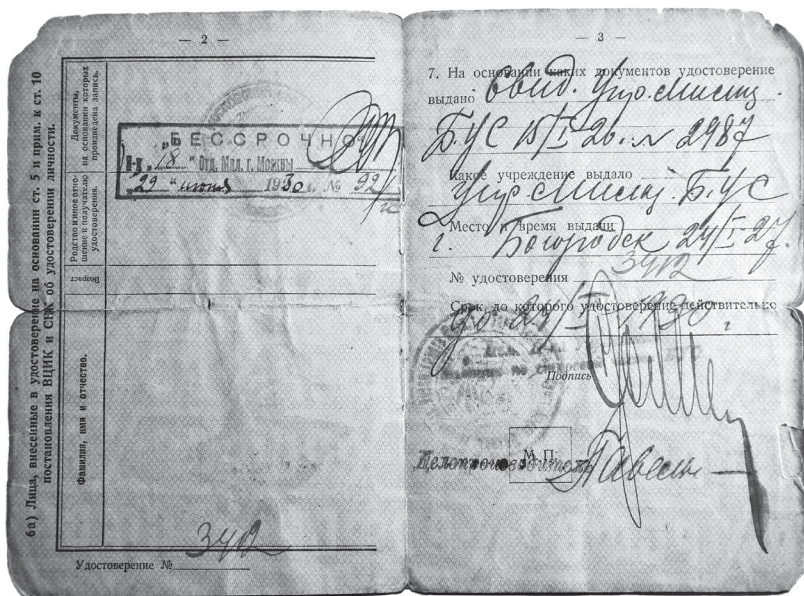 — 2 —
6а) Лица, внесенные в удостоверение на основании ст. 5 и прим. к ст. 10
постановления ВЦИК и СНК об удостоверении личности.
Документы,
на основании которых
произведена запись.
Родственное отно-
шение к получателю
удостоверения.
Возраст
Фамилия, имя и отчество.
„БЕССРОЧНО"
Н-к „18" Отд. Мил. г. Москвы
„29" июня 1930 г. № 92/
Удостоверение № 3412
— 3 —
7. На основании каких документов удостоверение
выдано Упр. Милиц.
Б.У.С 15/I-26. № 2987
Какое учреждение выдало
Упр. Милиц. Б.У.С
Место и время выдачи
г. Богородск 24/I-27.
№ удостоверения 3412
Срок, до которого удостоверение действительно
до 24/I 1930 г.
Подпись
М. П.
Делопроизводитель